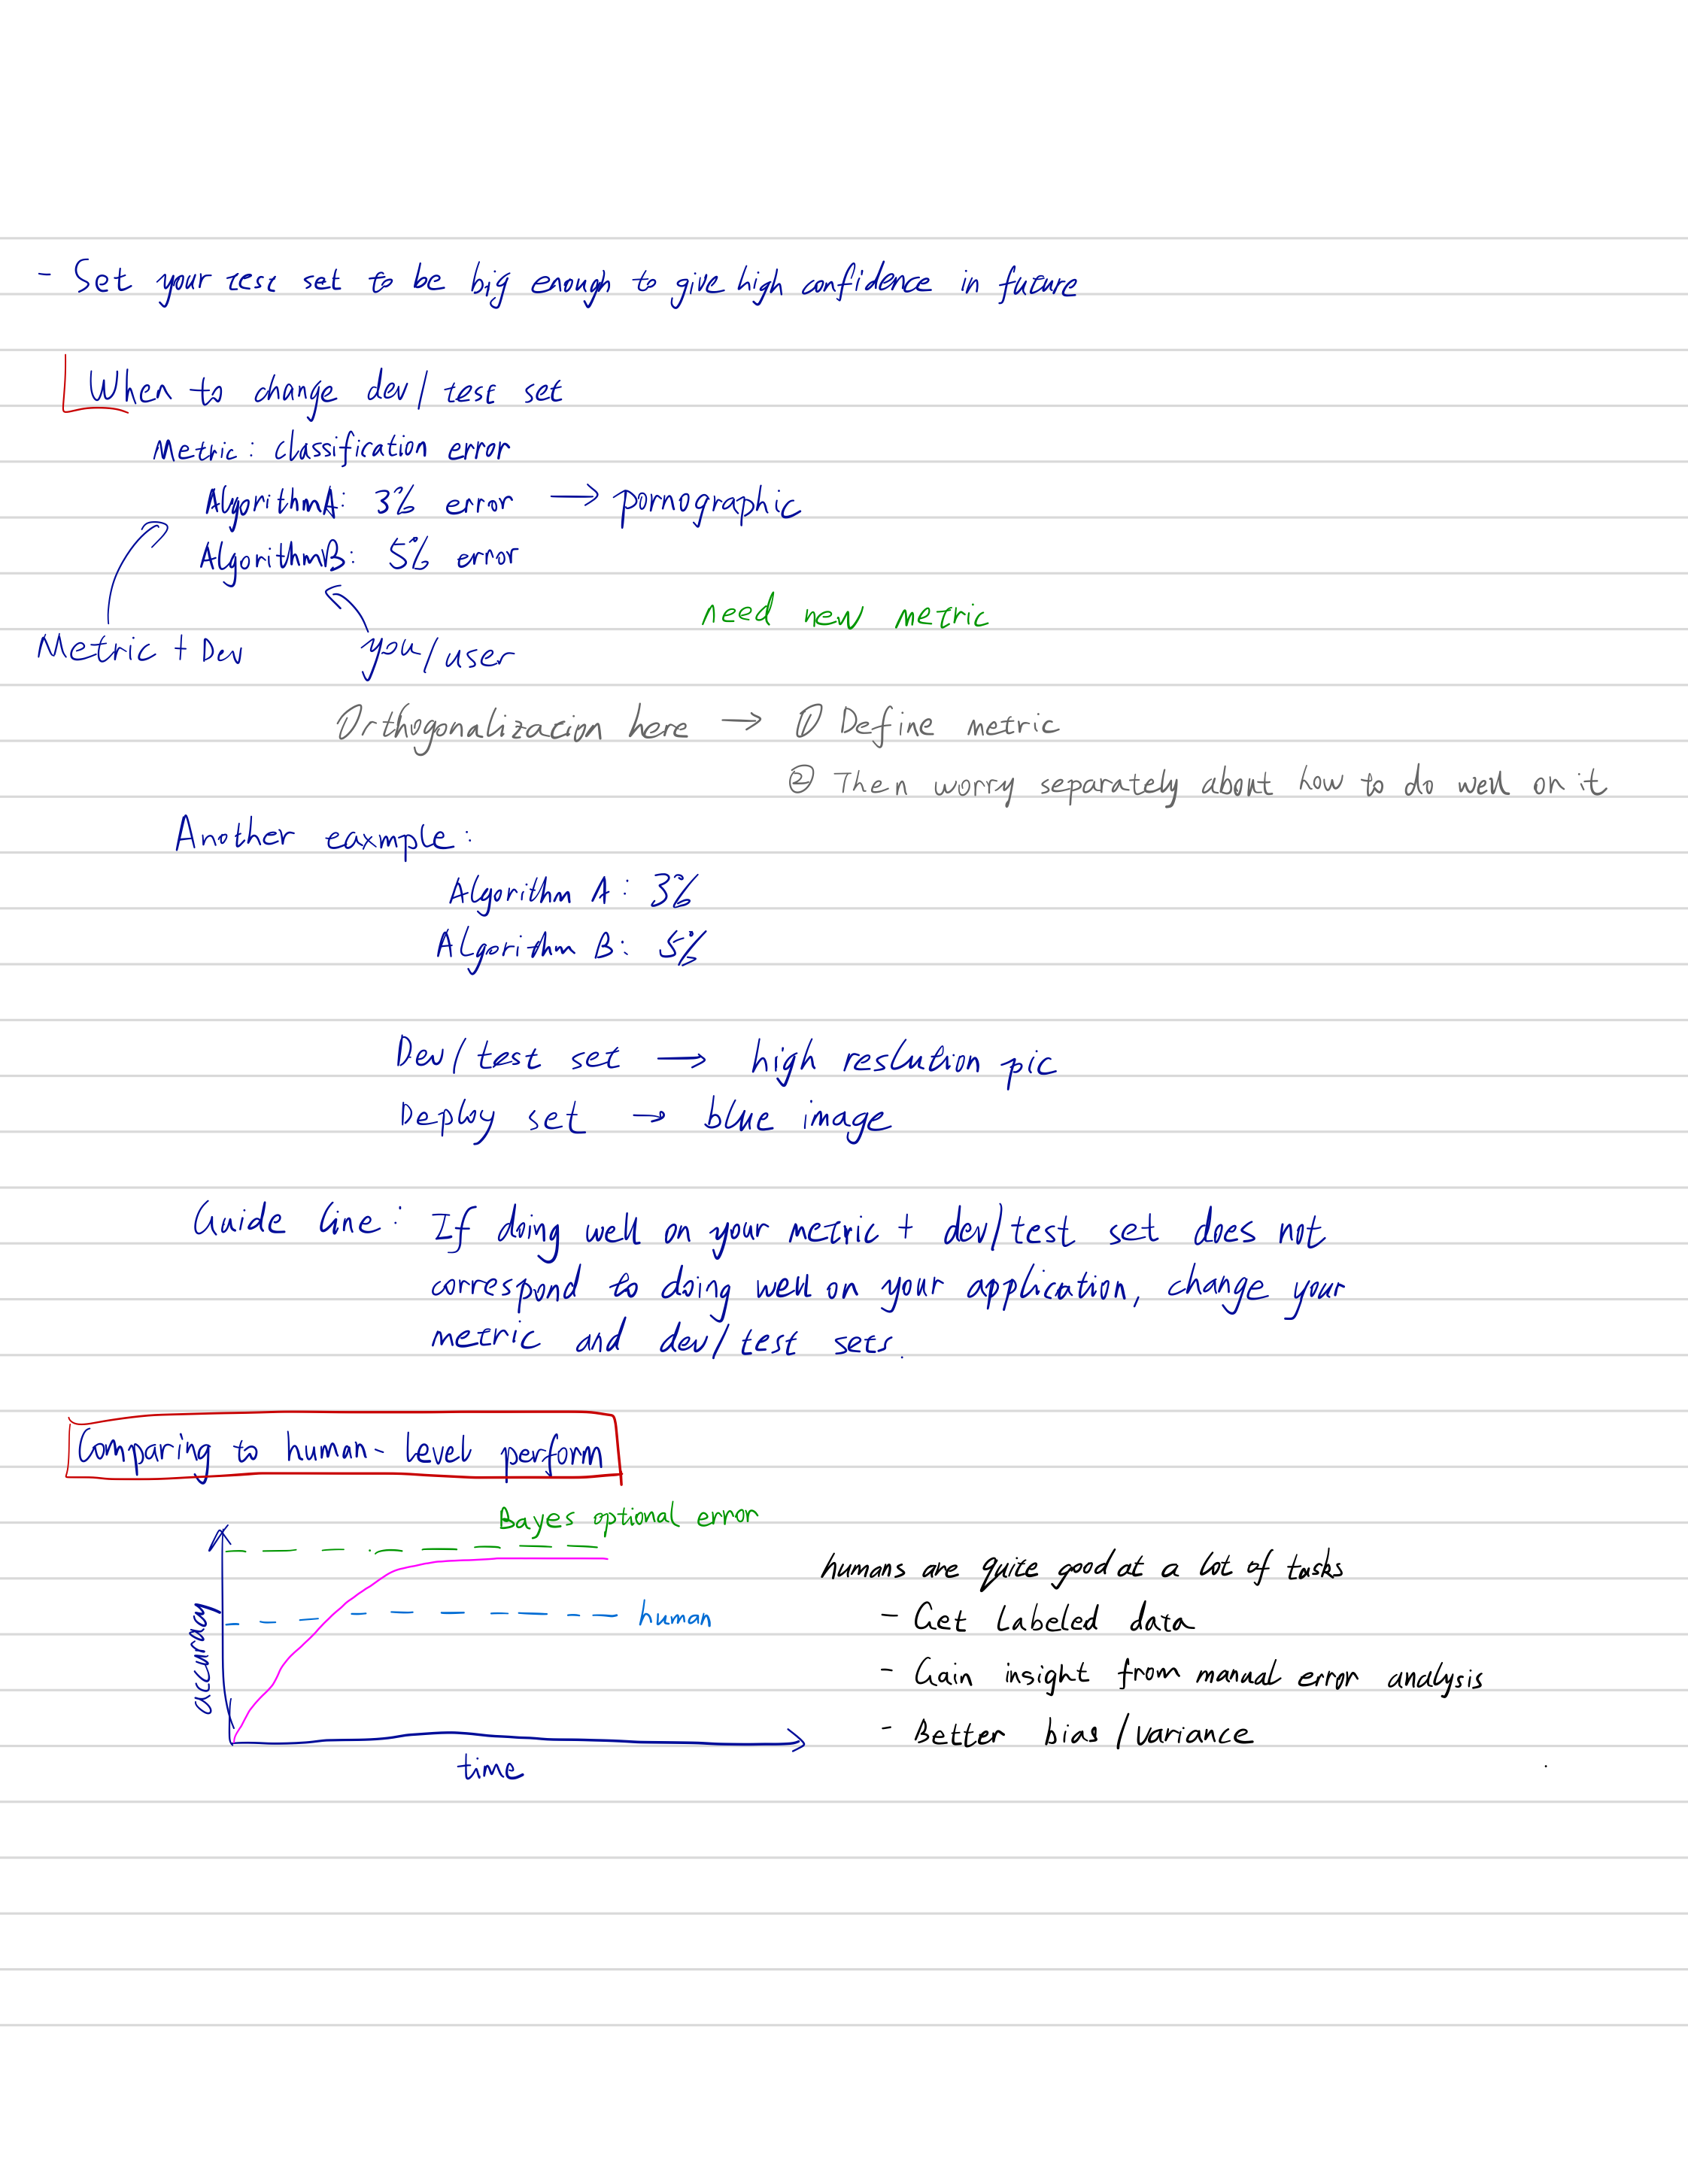 - Set your test set to be big enough to give high confidence in future
When to change dev/test set
Metric: classification error
AlgorithmA: 3% error → pornographic
AlgorithmB: 5% error
need new metric
Metric + Dev you/user
Orthogonalization here → ① Define metric
② Then worry separately about how to do well on it
Another eaxmple:
Algorithm A: 3%
Algorithm B: 5%
Dev/test set → high reslution pic
Deploy set → blue image
Guide line: If doing well on your metric + dev/test set does not
correspond to doing well on your application, change your
metric and dev/test sets.
Comparing to human-level perform
Bayes optional error
humans are quite good at a lot of tasks
human
- Get labeled data
accuracy
- Gain insight from manual error analysis
- Better bias/variance
time